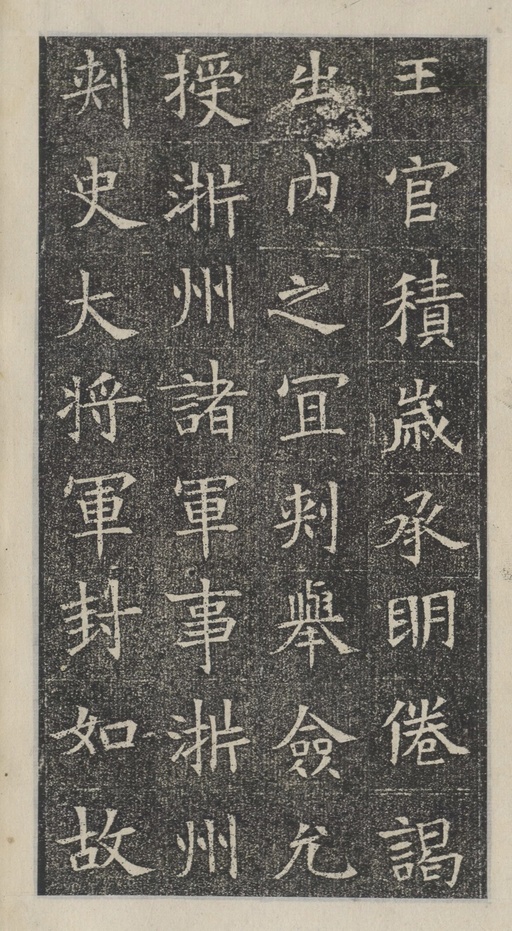 王官積歳承明倦謁
出内之冝刾舉僉允
授淅州諸軍事淅州
刾史大将軍封如故